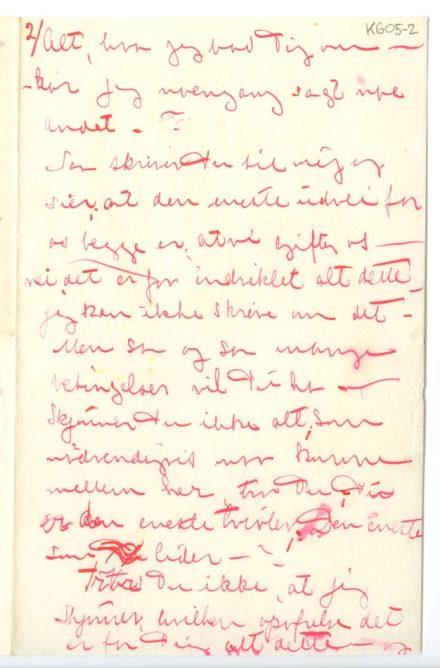 K605-2
2/ Alt, hva jeg bad Dig om —
– har jeg noengang sagt noe
andet. – ?
Saa skriver Du til mig og
sier, at den eneste udvei for
os begge er, at vi gifter os —
nei, det er for indviklet alt dette –
jeg kan ikke skrive om det –
Men saa og saa mange
betingelser vil Du ha —
Skjønner Du ikke alt, som
nødvendigvis maa komme
mellem her, tror Du, Du
er den eneste tviler, Den eneste
som lider – ?
tror Du ikke, at jeg
skjønner, hvilken opofrelse det
er for Dig alt dette –